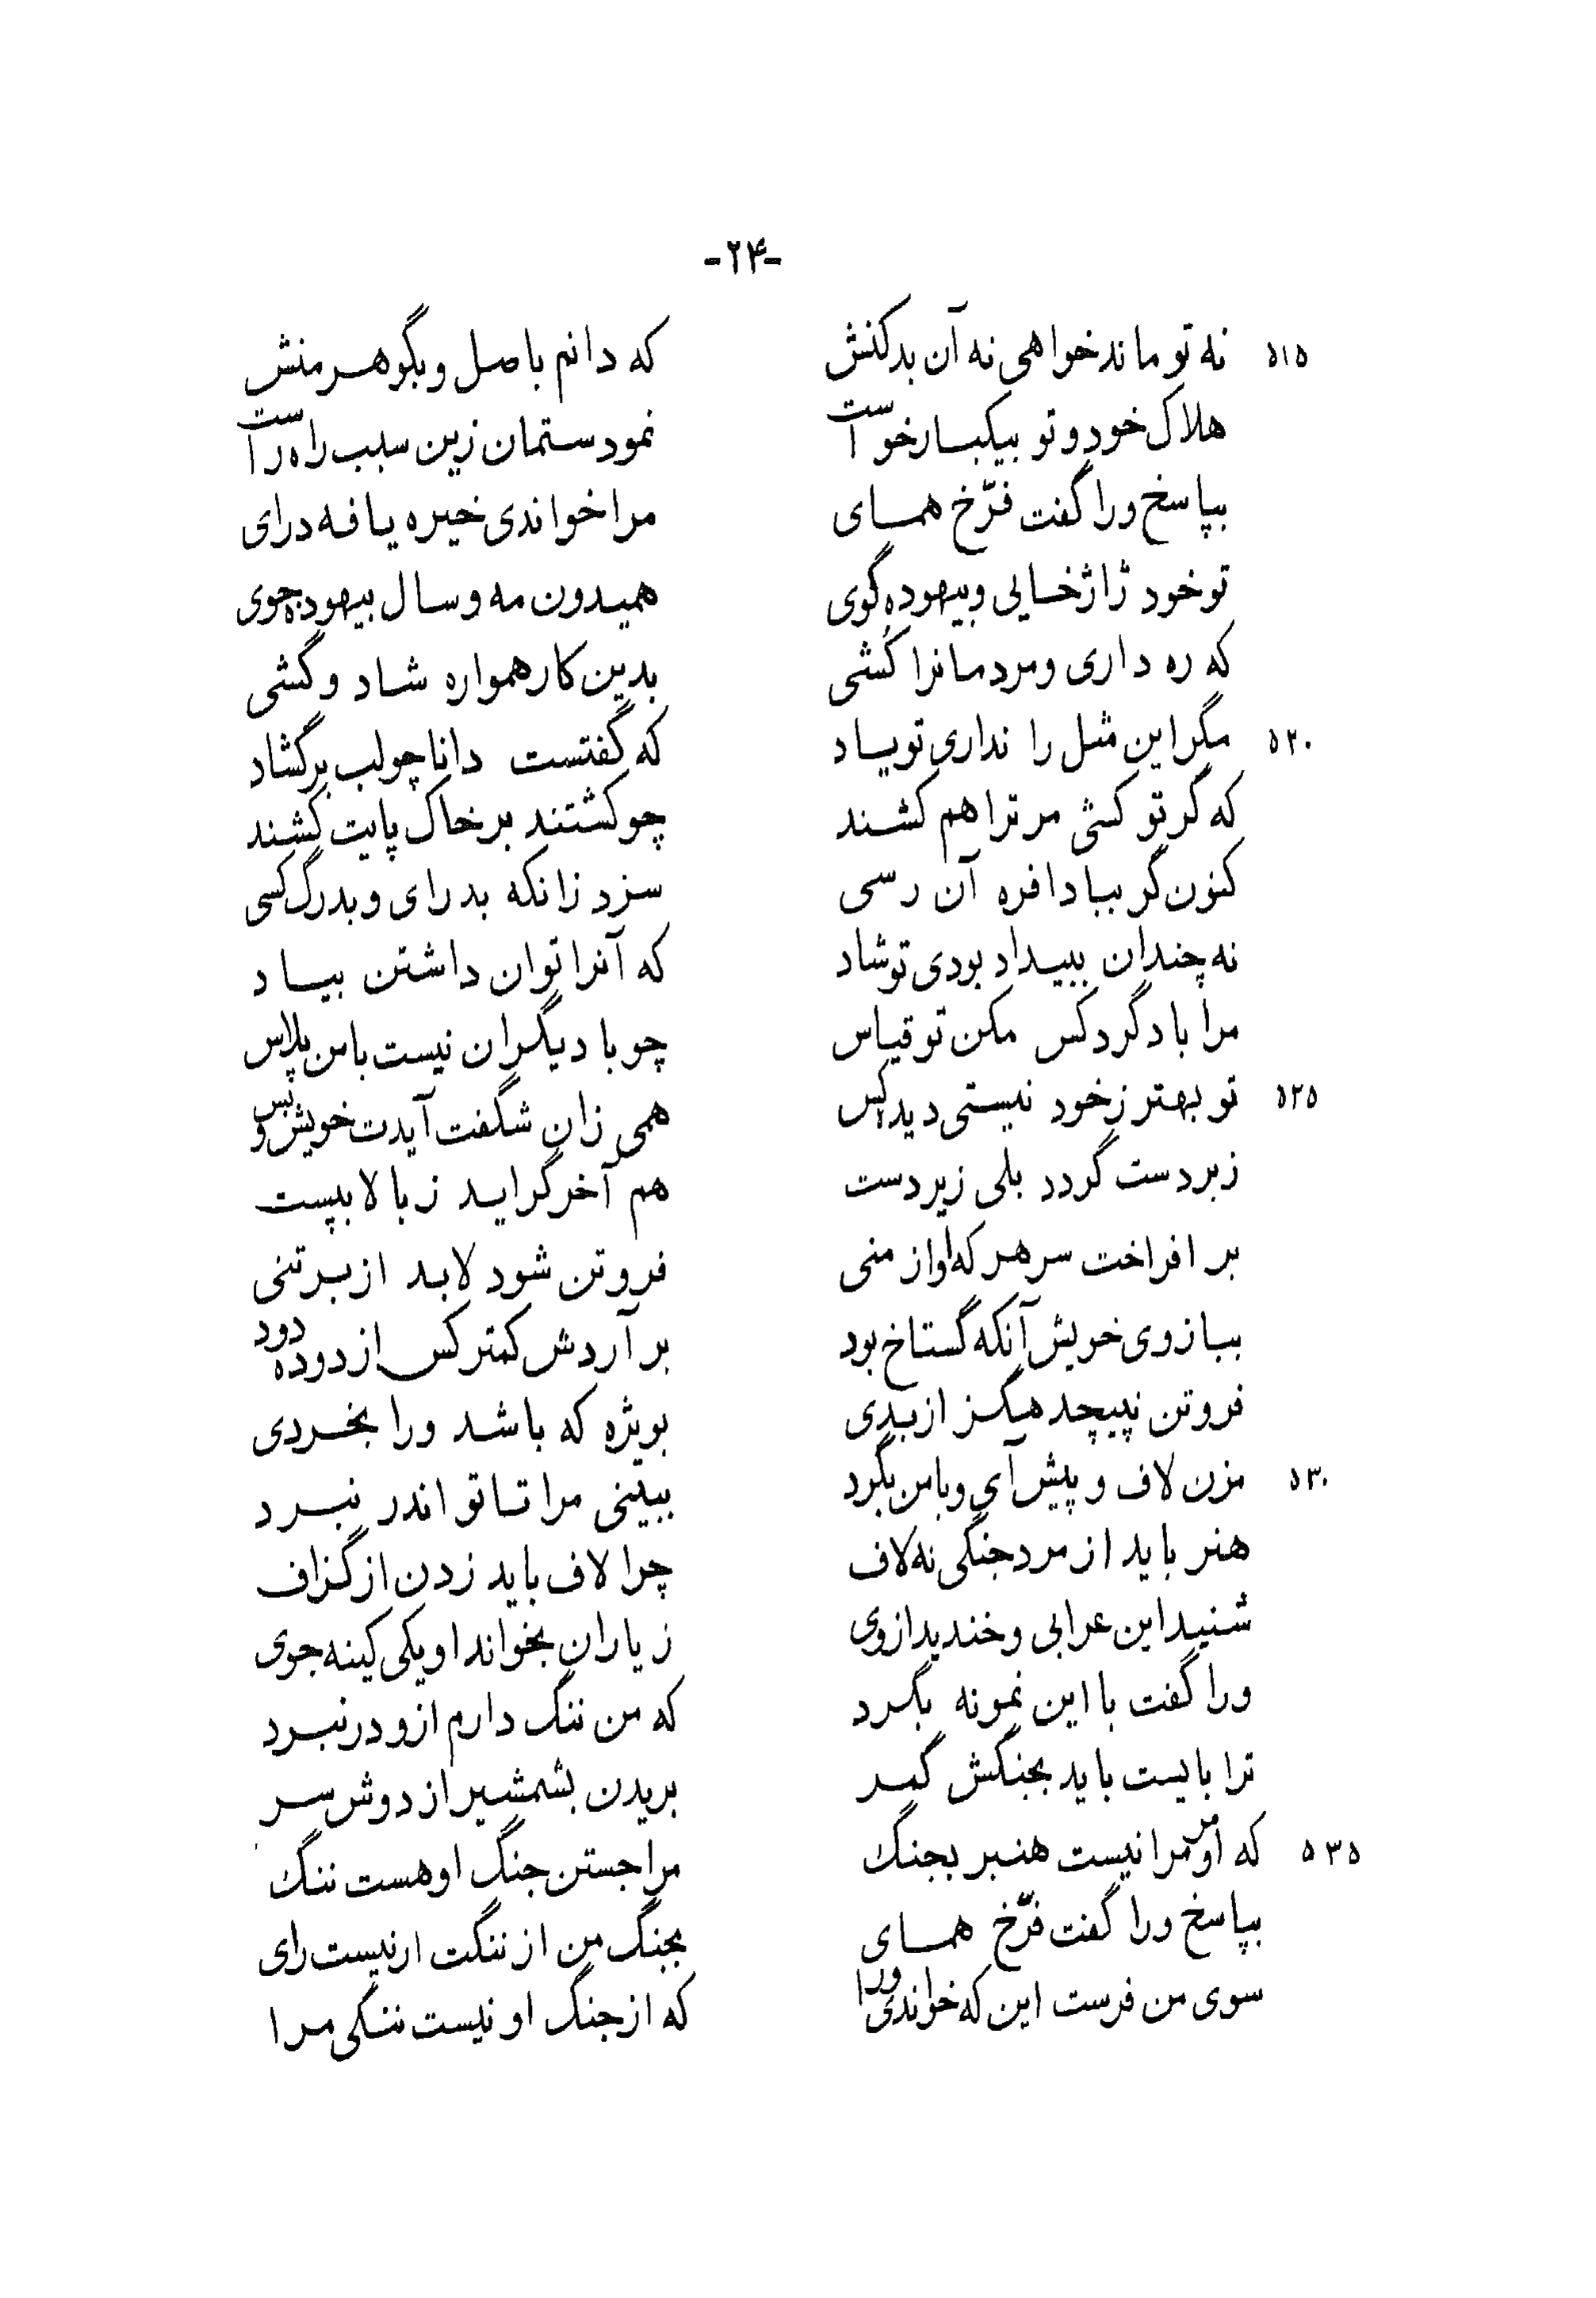 -۲۴-
۵۱۵ نه تو ماند خواهی نه آن بدکنش که دانم باصل و بگوهر منش
هلاک خود و تو بیکبار خواست نمودستمان زین سبب راه راست
بپاسخ ورا گفت فرّخ همای مرا خواندی خیره یافه درای
تو خود ژاژخایی و بیهوده گوی همیدون مه و سال بیهوده جوی
که ره داری و مردمانرا کُشی بدین کار همواره شاد و گشی
۵۲۰ مگر این مثل را نداری تو یاد که گفتست دانا چو لب برگشاد
که گر تو کشی مر ترا هم کشند چو کشتند بر خاک پایت کشند
کنون گر ببادافره آن رسی سزد زانکه بدرای و بدرگ کسی
نه چندان ببیداد بودی تو شاد که آنرا توان داشتن بیاد
مرا با دگر کس مکن تو قیاس چو با دیگران نیست با من پلاس
۵۲۵ تو بهتر ز خود نیستی دیده کس همی زان شگفت آیدت خویش و بس
زبردست گردد بلی زیردست هم آخر گراید ز بالا بپست
بر افراخت سر هر که او از منی فروتن شود لابد از برتنی
ببازوی خویش آنکه گستاخ بود بر آردش کمتر کس از دوده دود
فروتن نپیچد هگرز از بدی بویژه که باشد ورا بخردی
۵۳۰ مزن لاف و پیش آی و با من بگرد ببینی مرا تا تو اندر نبرد
هنر باید از مرد جنگی نه لاف چرا لاف باید زدن از گزاف
شنید این عرابی و خندید ازوی ز یاران بخواند او یکی کینه جوی
ورا گفت با این نمونه بگرد که من ننگ دارم ازو در نبرد
ترا بایست باید بجنگش کمر بریدن بشمشیر از دوش سر
۵۳۵ که او مر مرا نیست هنبر بجنگ مرا جستن جنگ او هست ننگ
بپاسخ ورا گفت فرّخ همای بجنگ من از ننگت ار نیست رای
سوی من فرست این که خواندی ورا که از جنگ او نیست ننگی مرا